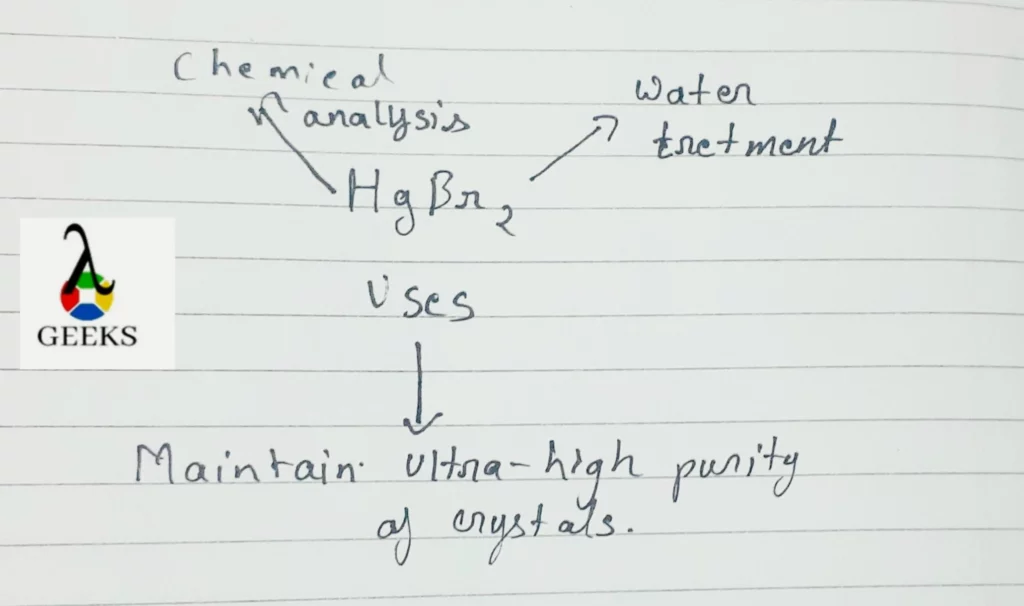 Chemical
analysis
Water
tretment
HgBr2
Uses
λ
GEEKS
Maintain ultra-high purity
of crystals.